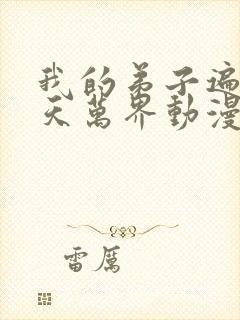 我的弟子遍
天萬界動漫
雷厲